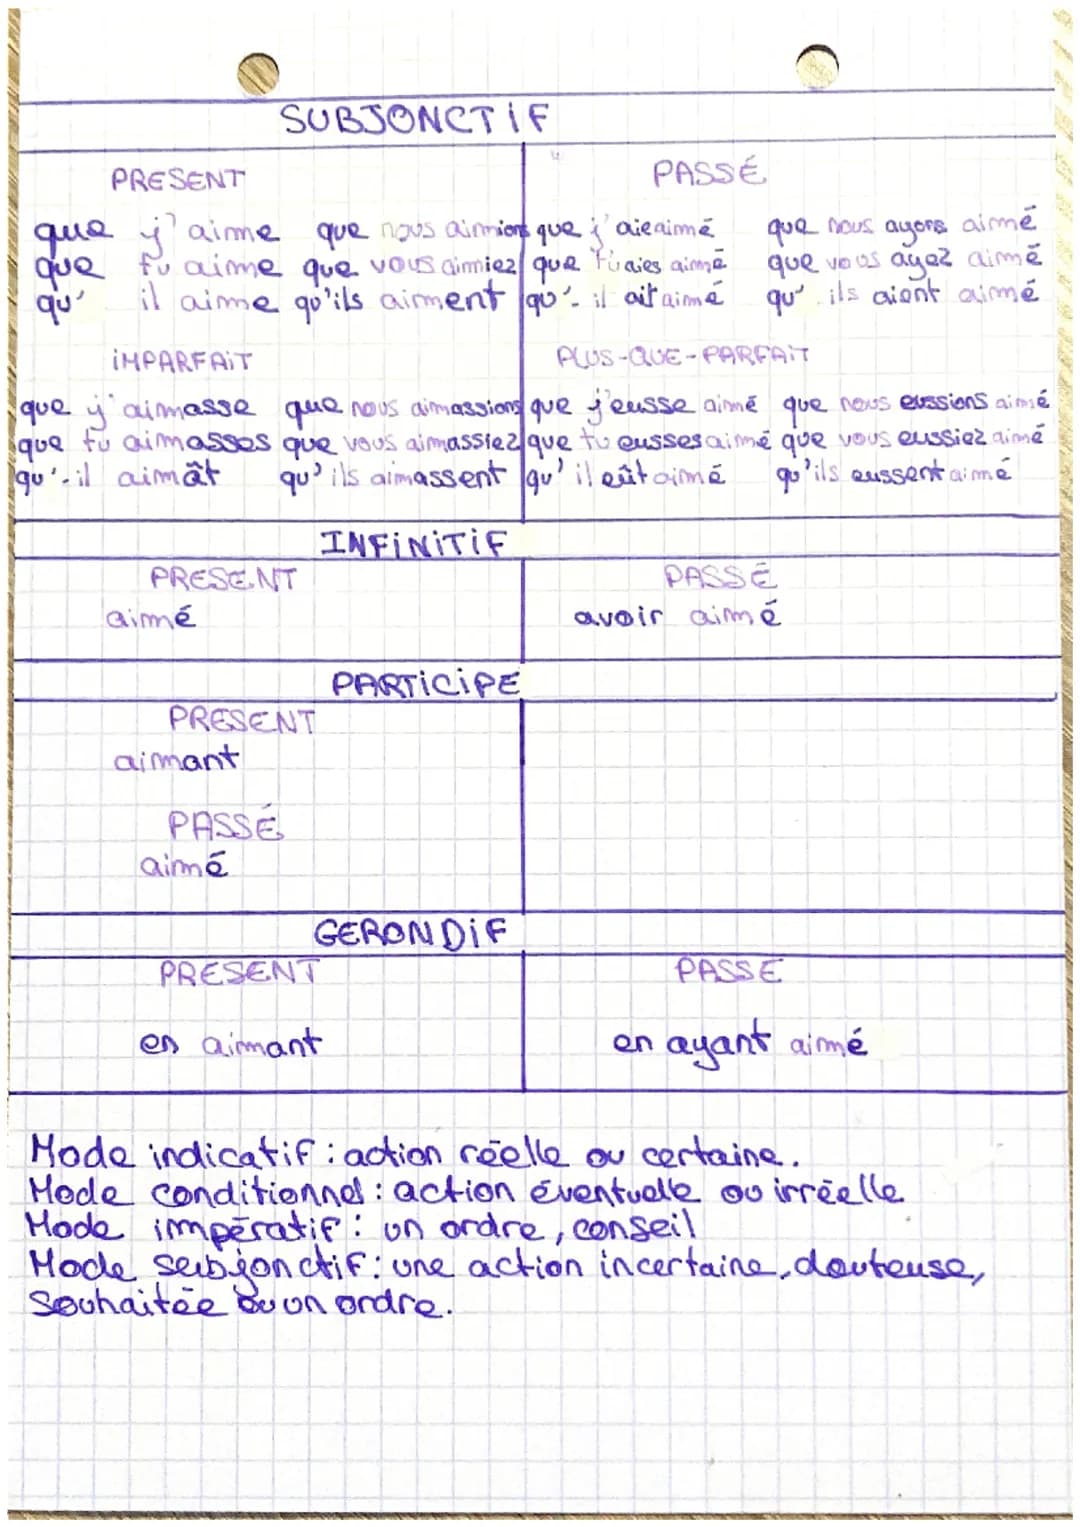 SUBJONCTIF
PRESENT PASSÉ
que j'aime que nous aimions que j'aie aimé que nous ayons aimé
que tu aime que vous aimiez que tu aies aimé que vous ayez aimé
qu' il aime qu'ils aiment qu'- il ait aimé qu' ils aient aimé
IMPARFAIT PLUS-QUE-PARFAIT
que j'aimasse que nous aimassions que j'eusse aimé que nous eussions aimé
que tu aimasses que vous aimassiez que tu eusses aimé que vous eussiez aimé
qu'-il aimât qu'ils aimassent qu'il eût aimé qu'ils eussent aimé
INFINITIF
PRESENT PASSÉ
aimé avoir aimé
PARTICIPE
PRESENT
aimant
PASSÉ
aimé
GERONDIF
PRESENT PASSE
en aimant en ayant aimé
Mode indicatif : action réelle ou certaine.
Mode conditionnel : action éventuelle ou irréelle
Mode impératif : un ordre, conseil
Mode subjonctif : une action incertaine, douteuse,
Souhaitée ou un ordre.